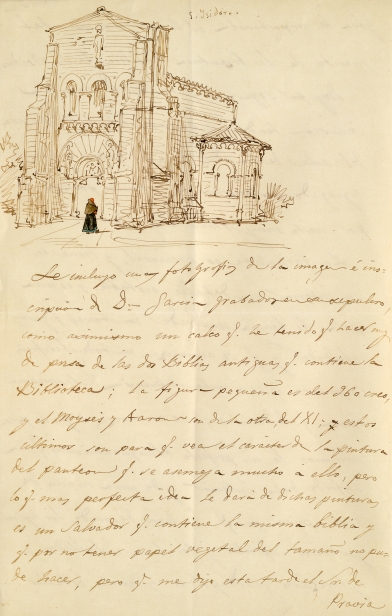 S. Isidoro.
Le incluyo unas fotografias de la imagen é ins-
cripcion de Dn. Garcia grabador en su sepulcro,
como asimismo un calco q. he tenido q. hacer muy
de prisa de las dos Biblias antiguas q. contiene la
Biblioteca; la figura pequeña es del 960 creo,
y el Moyses y Aaron son de la otra, del XI; y estos
últimos son para q. vea el carácter de la pintura
del panteon q. se asemeja mucho á ello, pero
lo q. mas perfecta idea le dará de dichas pinturas
es un Salvador q. contiene la misma biblia y
q. por no tener papel vegetal del tamaño no pu-
de hacer, pero q. me dijo esta tarde el Sr. de
Pravia